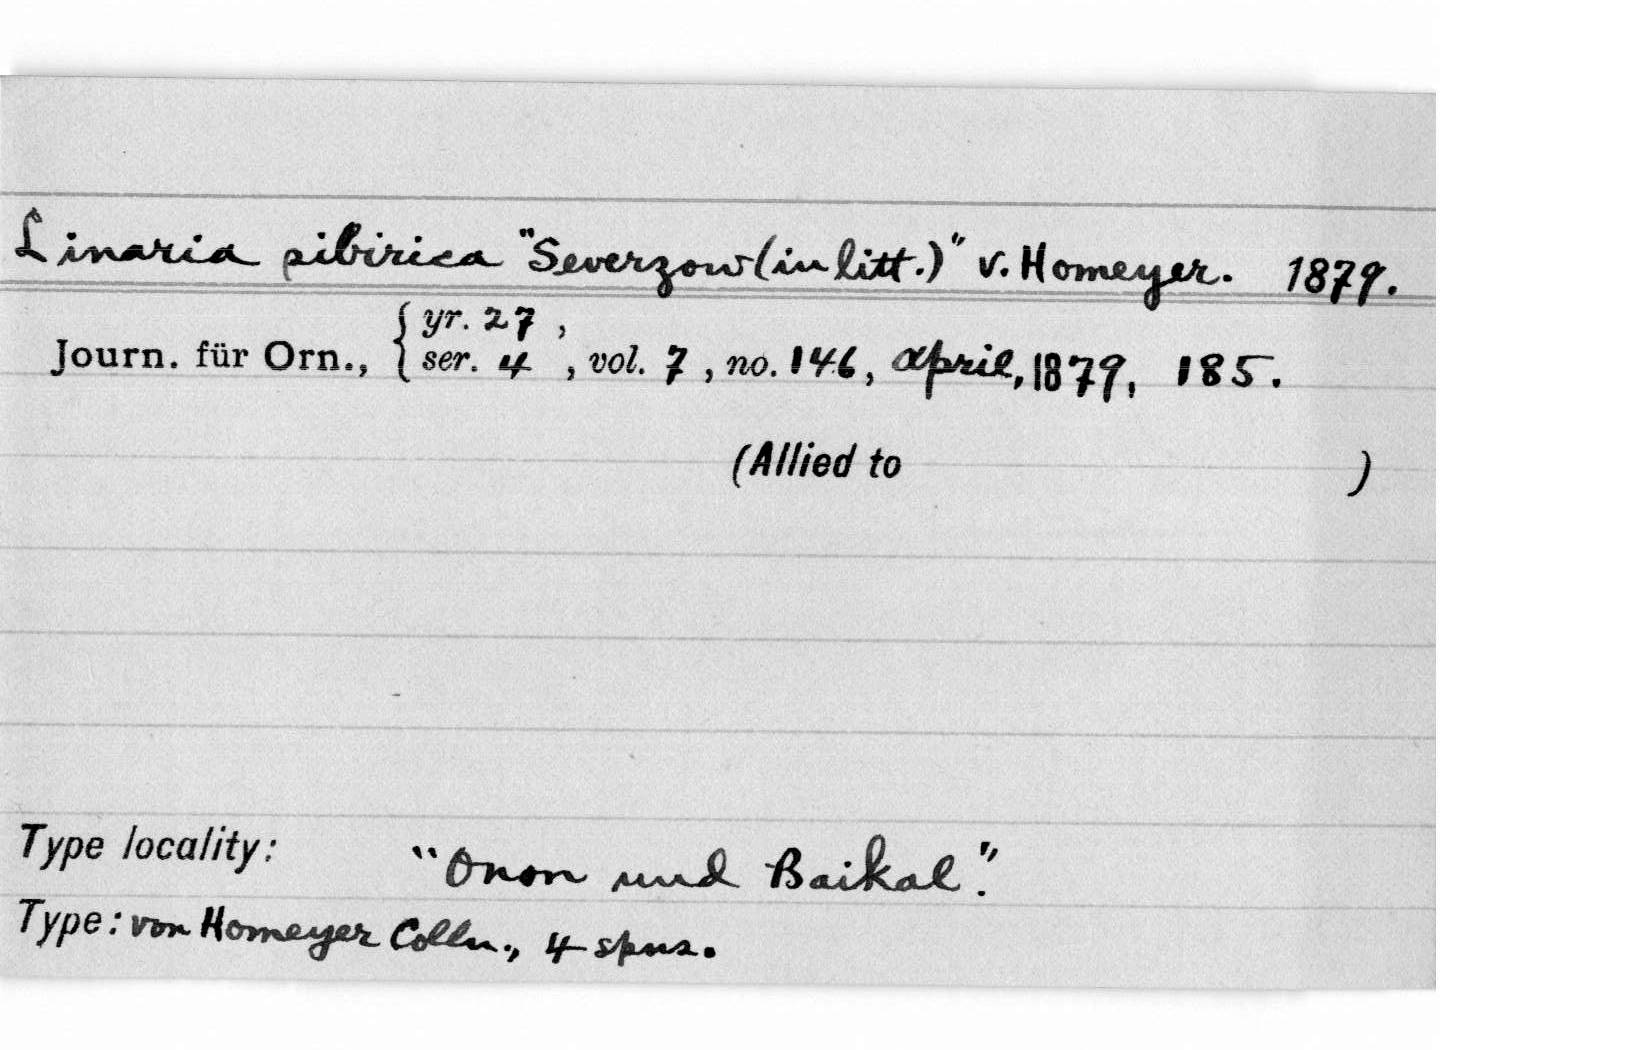 Linaria sibirica "Severzow (in litt.)" v. Homeyer. 1879.
yr. 27,
Journ. für Orn., ser. 4, vol. 7, no. 146, April, 1879, 185.
(Allied to )
Type locality: "Onon und Baikal".
Type: von Homeyer Colln., 4 spns.